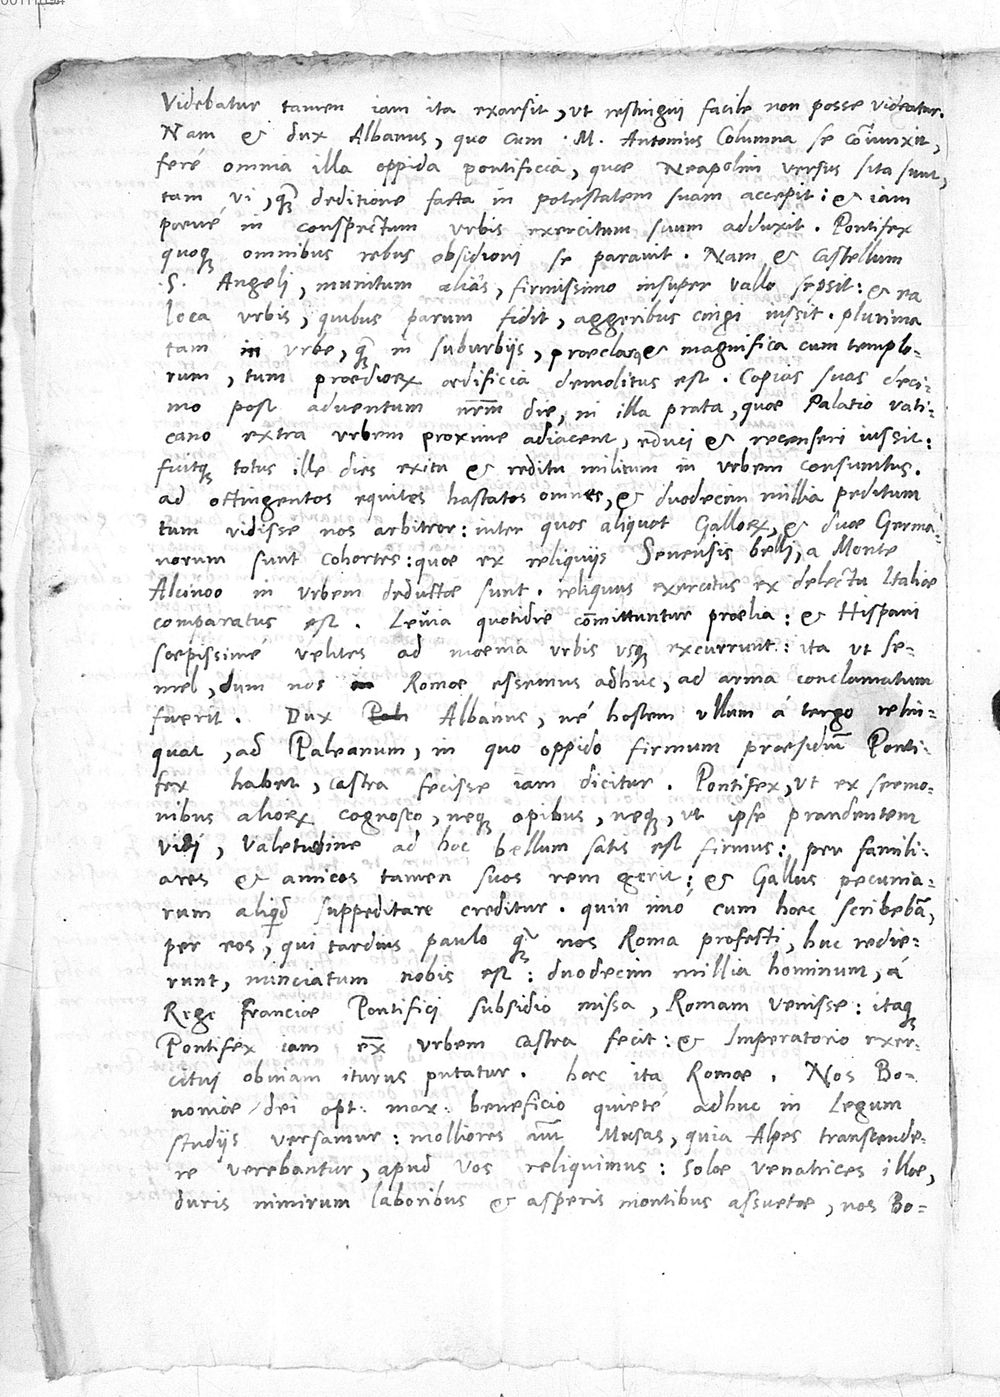 Videbatur tamen iam ita exarsit, ut restingui facile non posse videatur.
Nam & dux Albanus, quo cum .M. Antonius Columna se cōiunxit,
feré omnia illa oppida pontificia, quae Neapolim versus sita sunt,
tam vi, q̃ deditione facta in potestatem suam accepit: & iam
poené in conspectum urbis exercitum suum adduxit. Pontifex
quoqꝫ omnibus rebus obsidioni se paravit. Nam & castellum
.S. Angeli, munitum aliás, firmissimo insuper vallo sepsit: & ea
loca urbis, quibus parum fidit, aggeribus cingi iussit. plurima
tam in urbe, q̃ in suburbijs, praeclaraqꝫ & magnifica cum templo-
rum, tum praediorꝝ aedificia demolitus est. Copias suas deci-
mo post adventum nr̃m die, in illa prata, quae Palatio vati-
cano extra urbem proxime adiacent, educi & recenseri iussit:
fuitqꝫ totus ille dies exitu & reditu militum in urbem consumtus.
ad octingentos equites hastatos omnes, & duodecim millia peditum
tum vidisse nos arbitror: inter quos aliquot Gallorꝝ, & duae Germa-
norum sunt cohortes: quae ex reliquijs Senensis belli, a Monte
Alcinoo in urbem deductae sunt. reliquus exercitus ex delectu Italiae
comparatus est. Levia quotidie cōmittuntur praelia: & Hispani
saepissimé velites ad moenia urbis usqꝫ excurrunt: ita ut se-
mel, dum nos in Romae essemus adhuc, ad arma conclamatum
fuerit. Dux Pali Albanus, né hostem ullum á tergo relin-
quat, ad Paleanum, in quo oppido firmum praesidiū Ponti-
fex habet, castra fecisse iam dicitur. Pontifex, ut ex sermo-
nibus aliorꝝ cognosco, neqꝫ opibus, neqꝫ, ut ipse prandentem
vidi, valetudine ad hoc bellum satis est firmus: per famili-
ares & amicos tamen suos rem gerit: & Gallus pecunia-
rum aliqd̃ suppeditare creditur. quin imó cum haec scribebā,
per eos, qui tardius paulo q̃ nos Roma profecti, huc redie-
runt, nunciatum nobis est: duodecim millia hominum, á
Rege Franciae Pontifici subsidio missa, Romam venisse: itaqꝫ
Pontifex iam ex urbem castra fecit: & Imperatorio exer-
citui obviam iturus putatur. haec ita Romae. Nos Bo-
noniae dei opt. max. beneficio quieté adhuc in Legum
studijs versamur: molliores aūt Musas, quia Alpes transcende-
re verebantur, apud vos reliquimus: solae venatrices illae,
duris nimirum laboribus & asperis montibus assuetae, nos Bo-